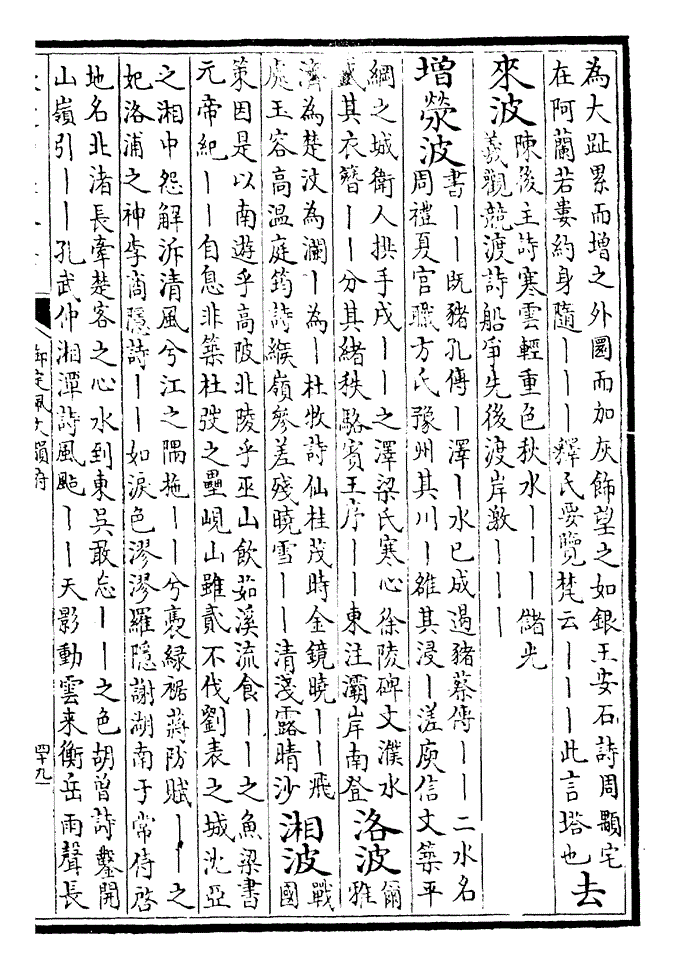 為大趾累而增之外圜而加灰飾望之如銀王安石詩周顒宅
在阿蘭若婁約身隨丨丨丨釋氏要覽梵云丨丨丨丨此言塔也
去
來波
陳後主詩寒雲輕重色秋水丨丨丨儲光
羲觀競渡詩船爭先後渡岸激丨丨丨
增滎波
書丨丨既豬孔傳丨澤丨水已成遏豬蔡傳丨丨二水名
周禮夏官職方氏豫州其川丨丨雒其浸丨溠庾信文築平
綱之城衛人拱手戍丨丨之澤梁氏寒心徐陵碑文濮水
盛其衣簪丨丨分其緒秩駱賓王序丨丨東注灞岸南登
洛波
爾
雅
濟為楚汶為瀾丨為丨丨杜牧詩仙桂茂時金鏡曉丨丨飛
處玉容高溫庭筠詩緱嶺參差殘曉雪丨丨清淺露晴沙
湘波
戰
國
策因是以南遊乎高陂北陵乎巫山飲茹溪流食丨丨之魚梁書
元帝紀丨丨自息非築杜弢之壘峴山雖貳不伐劉表之城沈亞
之湘中怨解泝清風兮江之隅拖丨丨兮裊綠裾蔣防賦丨丨之
妃洛浦之神李商隱詩丨丨如淚色漻漻羅隱謝湖南于常侍啓
地名北渚長牽楚客之心水到東吳敢忘丨丨之色胡曾詩鑿開
山嶺引丨丨孔武仲湘潭詩風颭丨丨天影動雲来衡岳雨聲長
御定佩文韻府
四十九